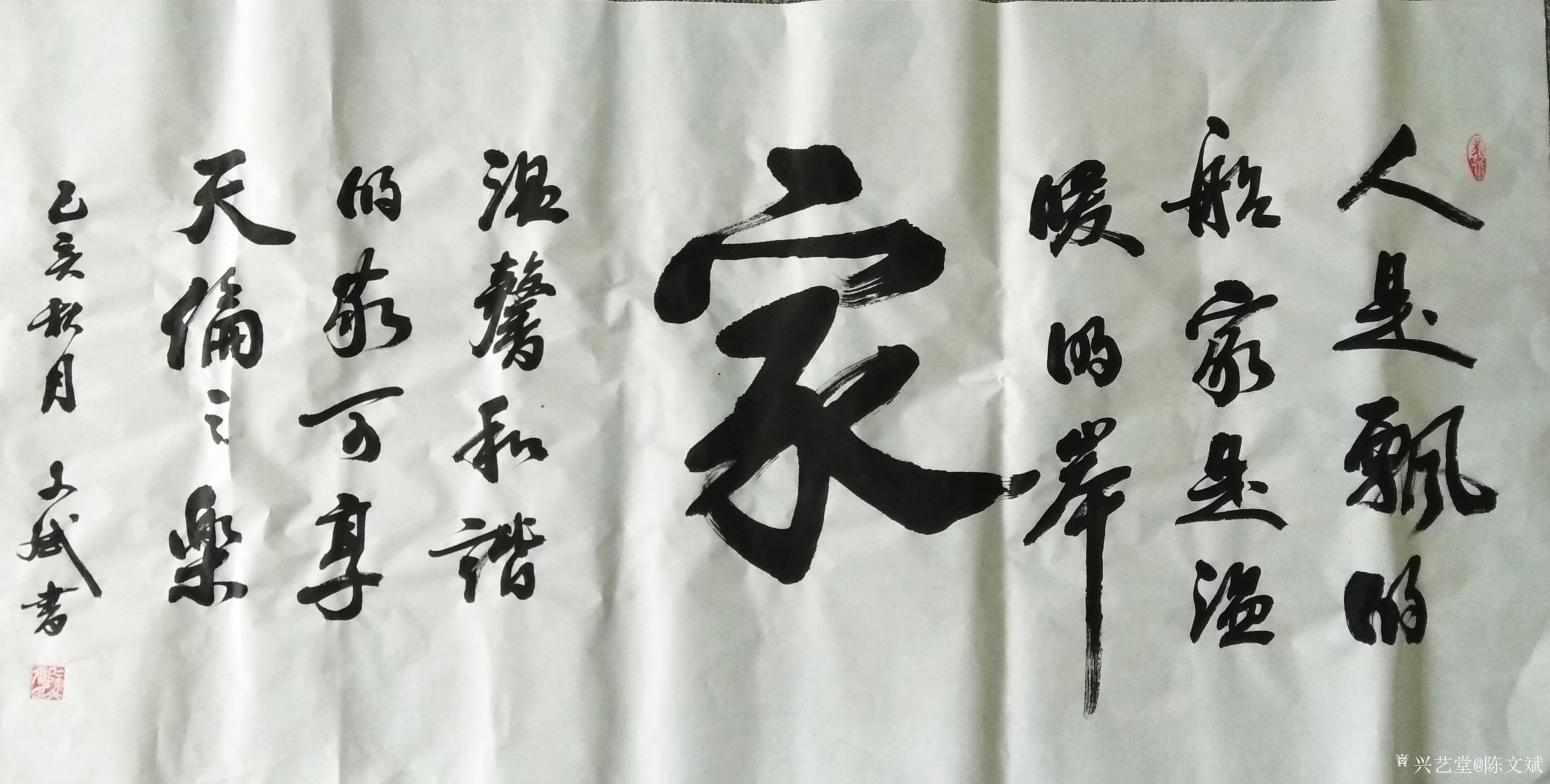 人是飘的
船家是温
暖的岸
家
温馨和谐
的家可享
天倫之樂
己亥秋月 文斌书
兴艺堂@陈文斌